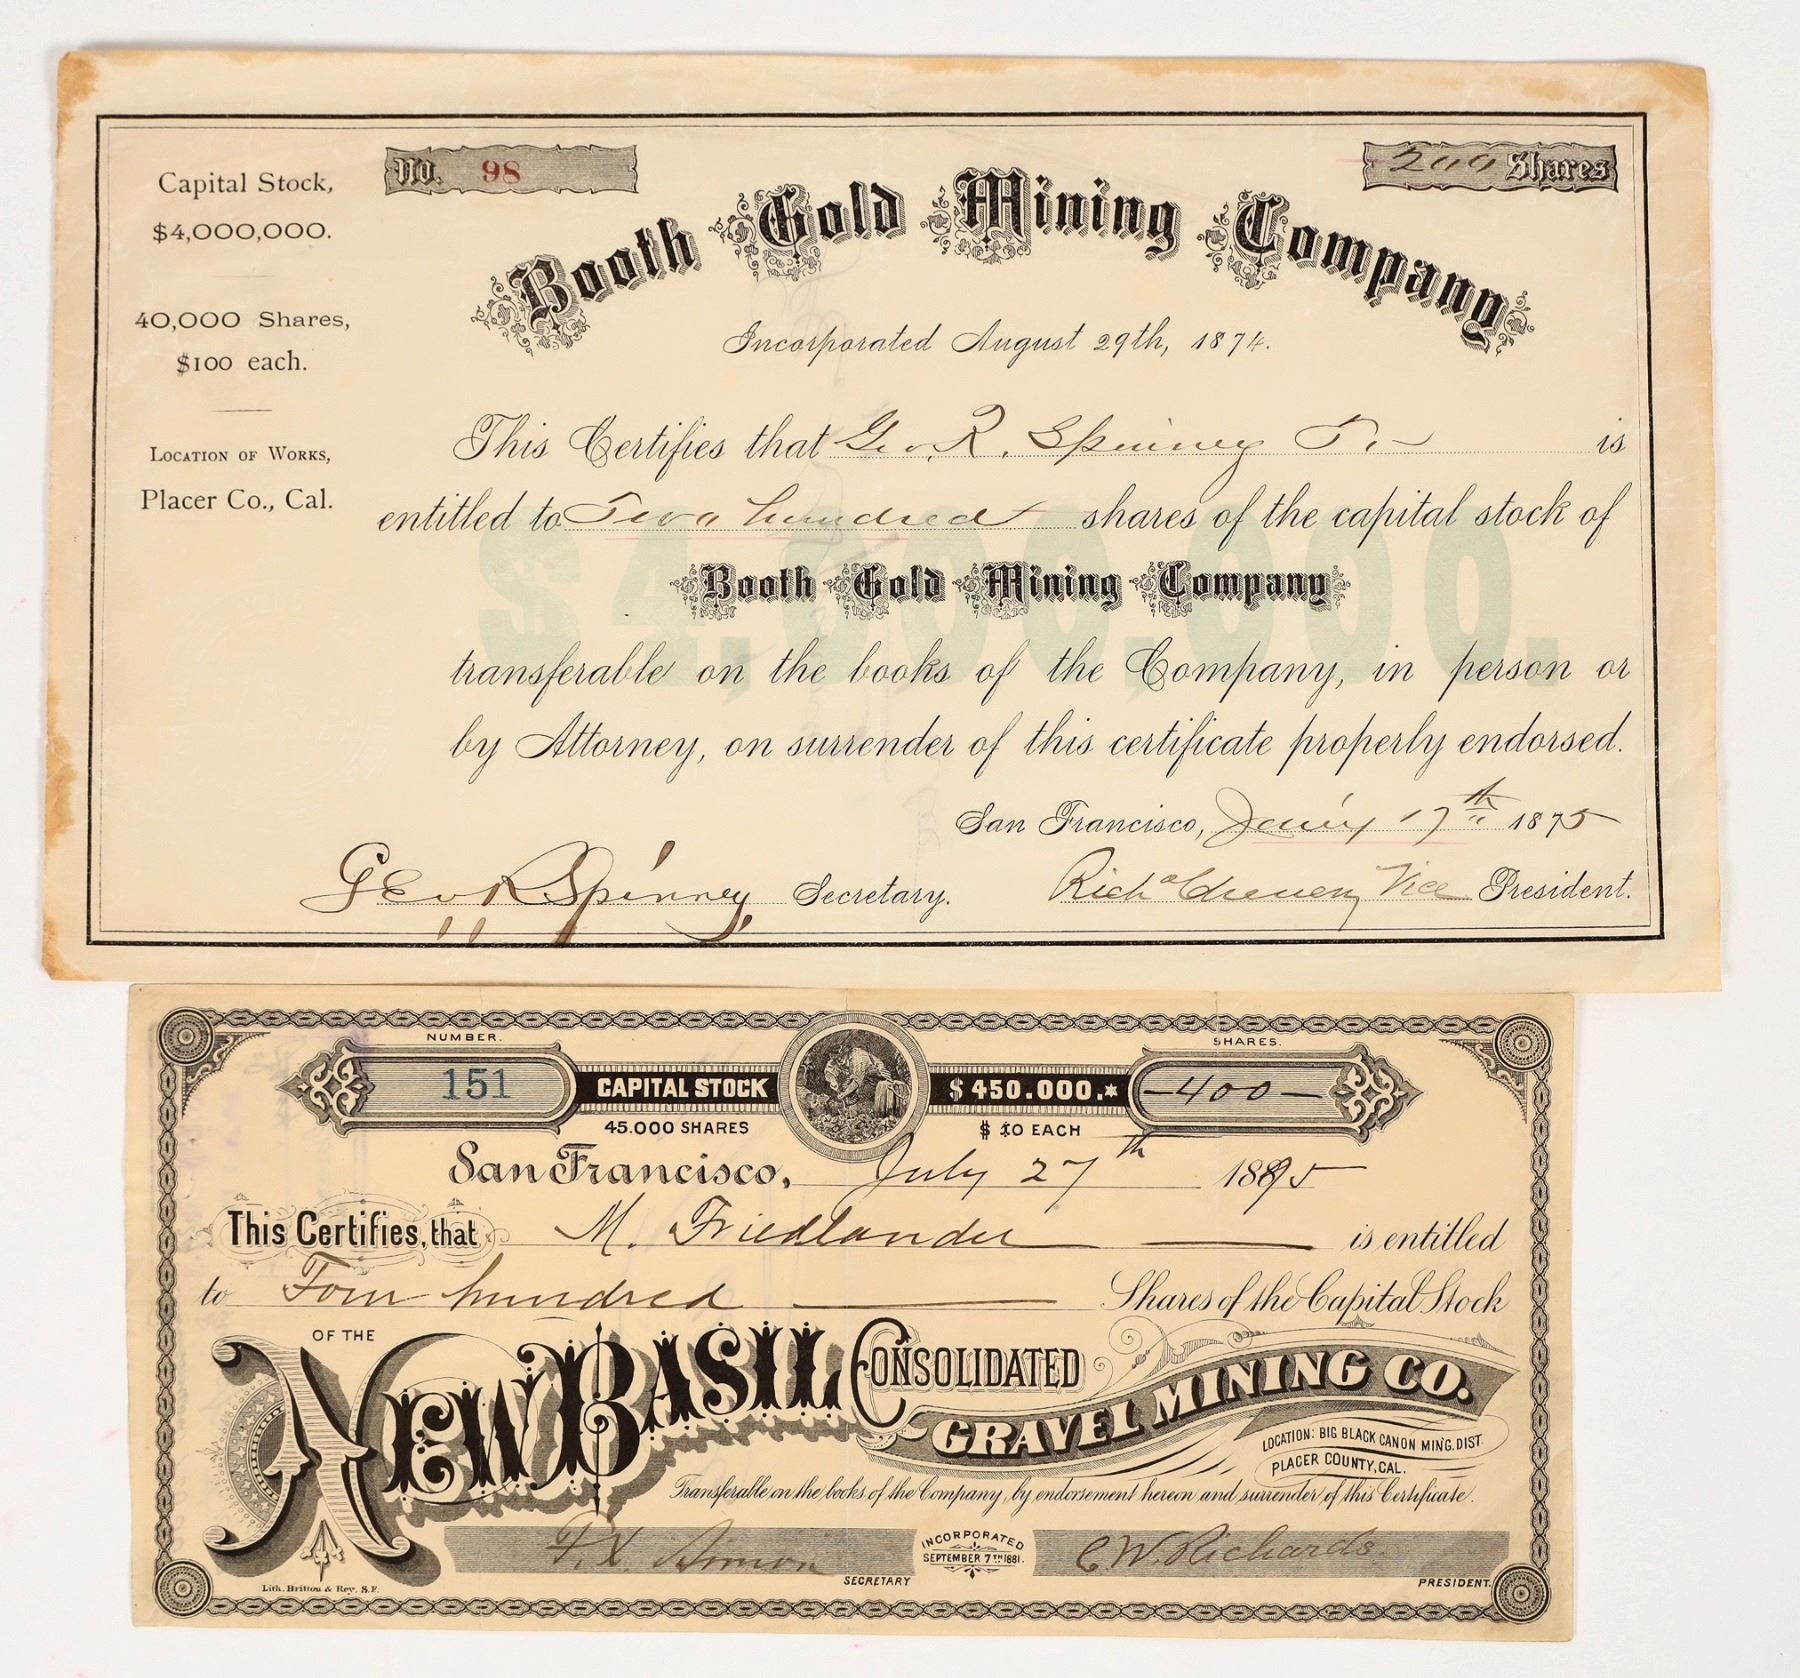 Capital Stock,
$4,000,000.
40,000 Shares,
$100 each.
LOCATION OF WORKS,
Placer Co., Cal.
No. 98
200 Shares
Booth Gold Mining Company
Incorporated August 29th, 1874.
This Certifies that Geo. R. Spinney Tr. is
entitled to Two hundred shares of the capital stock of
$4,000,000.
Booth Gold Mining Company
transferable on the books of the Company, in person or
by Attorney, on surrender of this certificate properly endorsed.
San Francisco, Jan'y 17th 1875
Geo R Spinney Secretary. Richd Cheney Vice President.
NUMBER. SHARES.
151 CAPITAL STOCK $450.000. -400-
45.000 SHARES $10 EACH
San Francisco, July 27th 1895
This Certifies, that M. Friedlander is entitled
to Four hundred Shares of the Capital Stock
OF THE
NEW BASIL CONSOLIDATED
GRAVEL MINING CO.
LOCATION: BIG BLACK CANON MIN'G. DIST.
PLACER COUNTY, CAL.
Transferable on the books of the Company, by endorsement hereon and surrender of this Certificate.
F. X. Simon SECRETARY
INCORPORATED
SEPTEMBER 7TH 1881.
C W. Richards. PRESIDENT.
Lith. Britton & Rey. S.F.